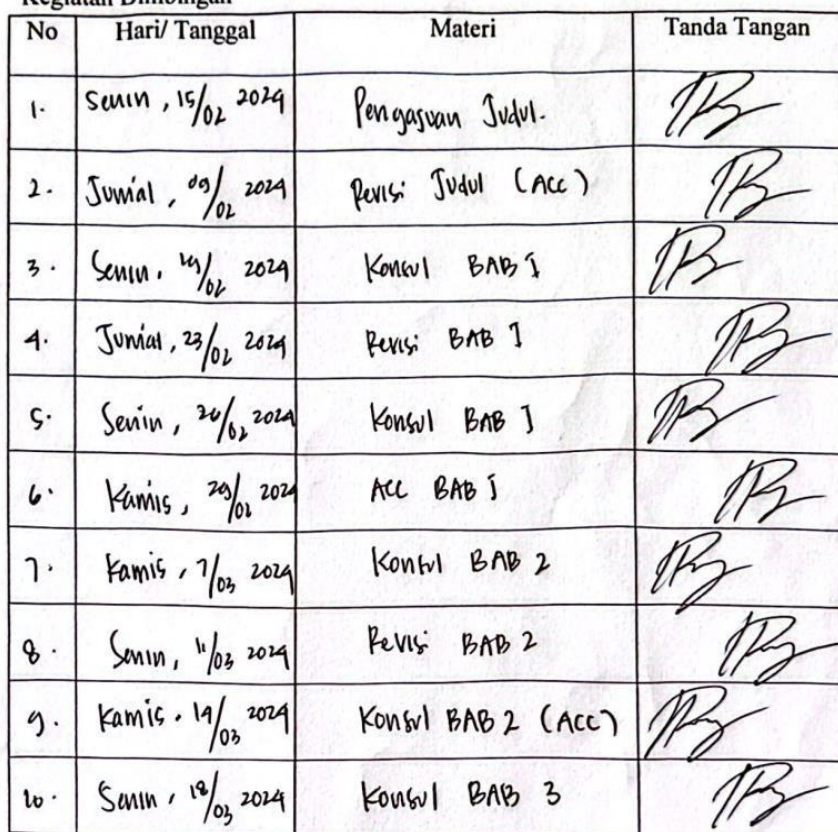 Kegiatan Bimbingan
No Hari/ Tanggal Materi Tanda Tangan
1. Senin, 15/02 2024 Pengajuan Judul.
2. Jumat, 09/02 2024 Revisi Judul (ACC)
3. Senin, 19/02 2024 Konsul BAB I
4. Jumat, 23/02 2024 Revisi BAB I
5. Senin, 26/02 2024 Konsul BAB I
6. Kamis, 29/02 2024 ACC BAB I
7. Kamis, 7/03 2024 Konsul BAB 2
8. Senin, 11/03 2024 Revisi BAB 2
9. Kamis, 14/03 2024 Konsul BAB 2 (ACC)
10. Senin, 18/03 2024 Konsul BAB 3